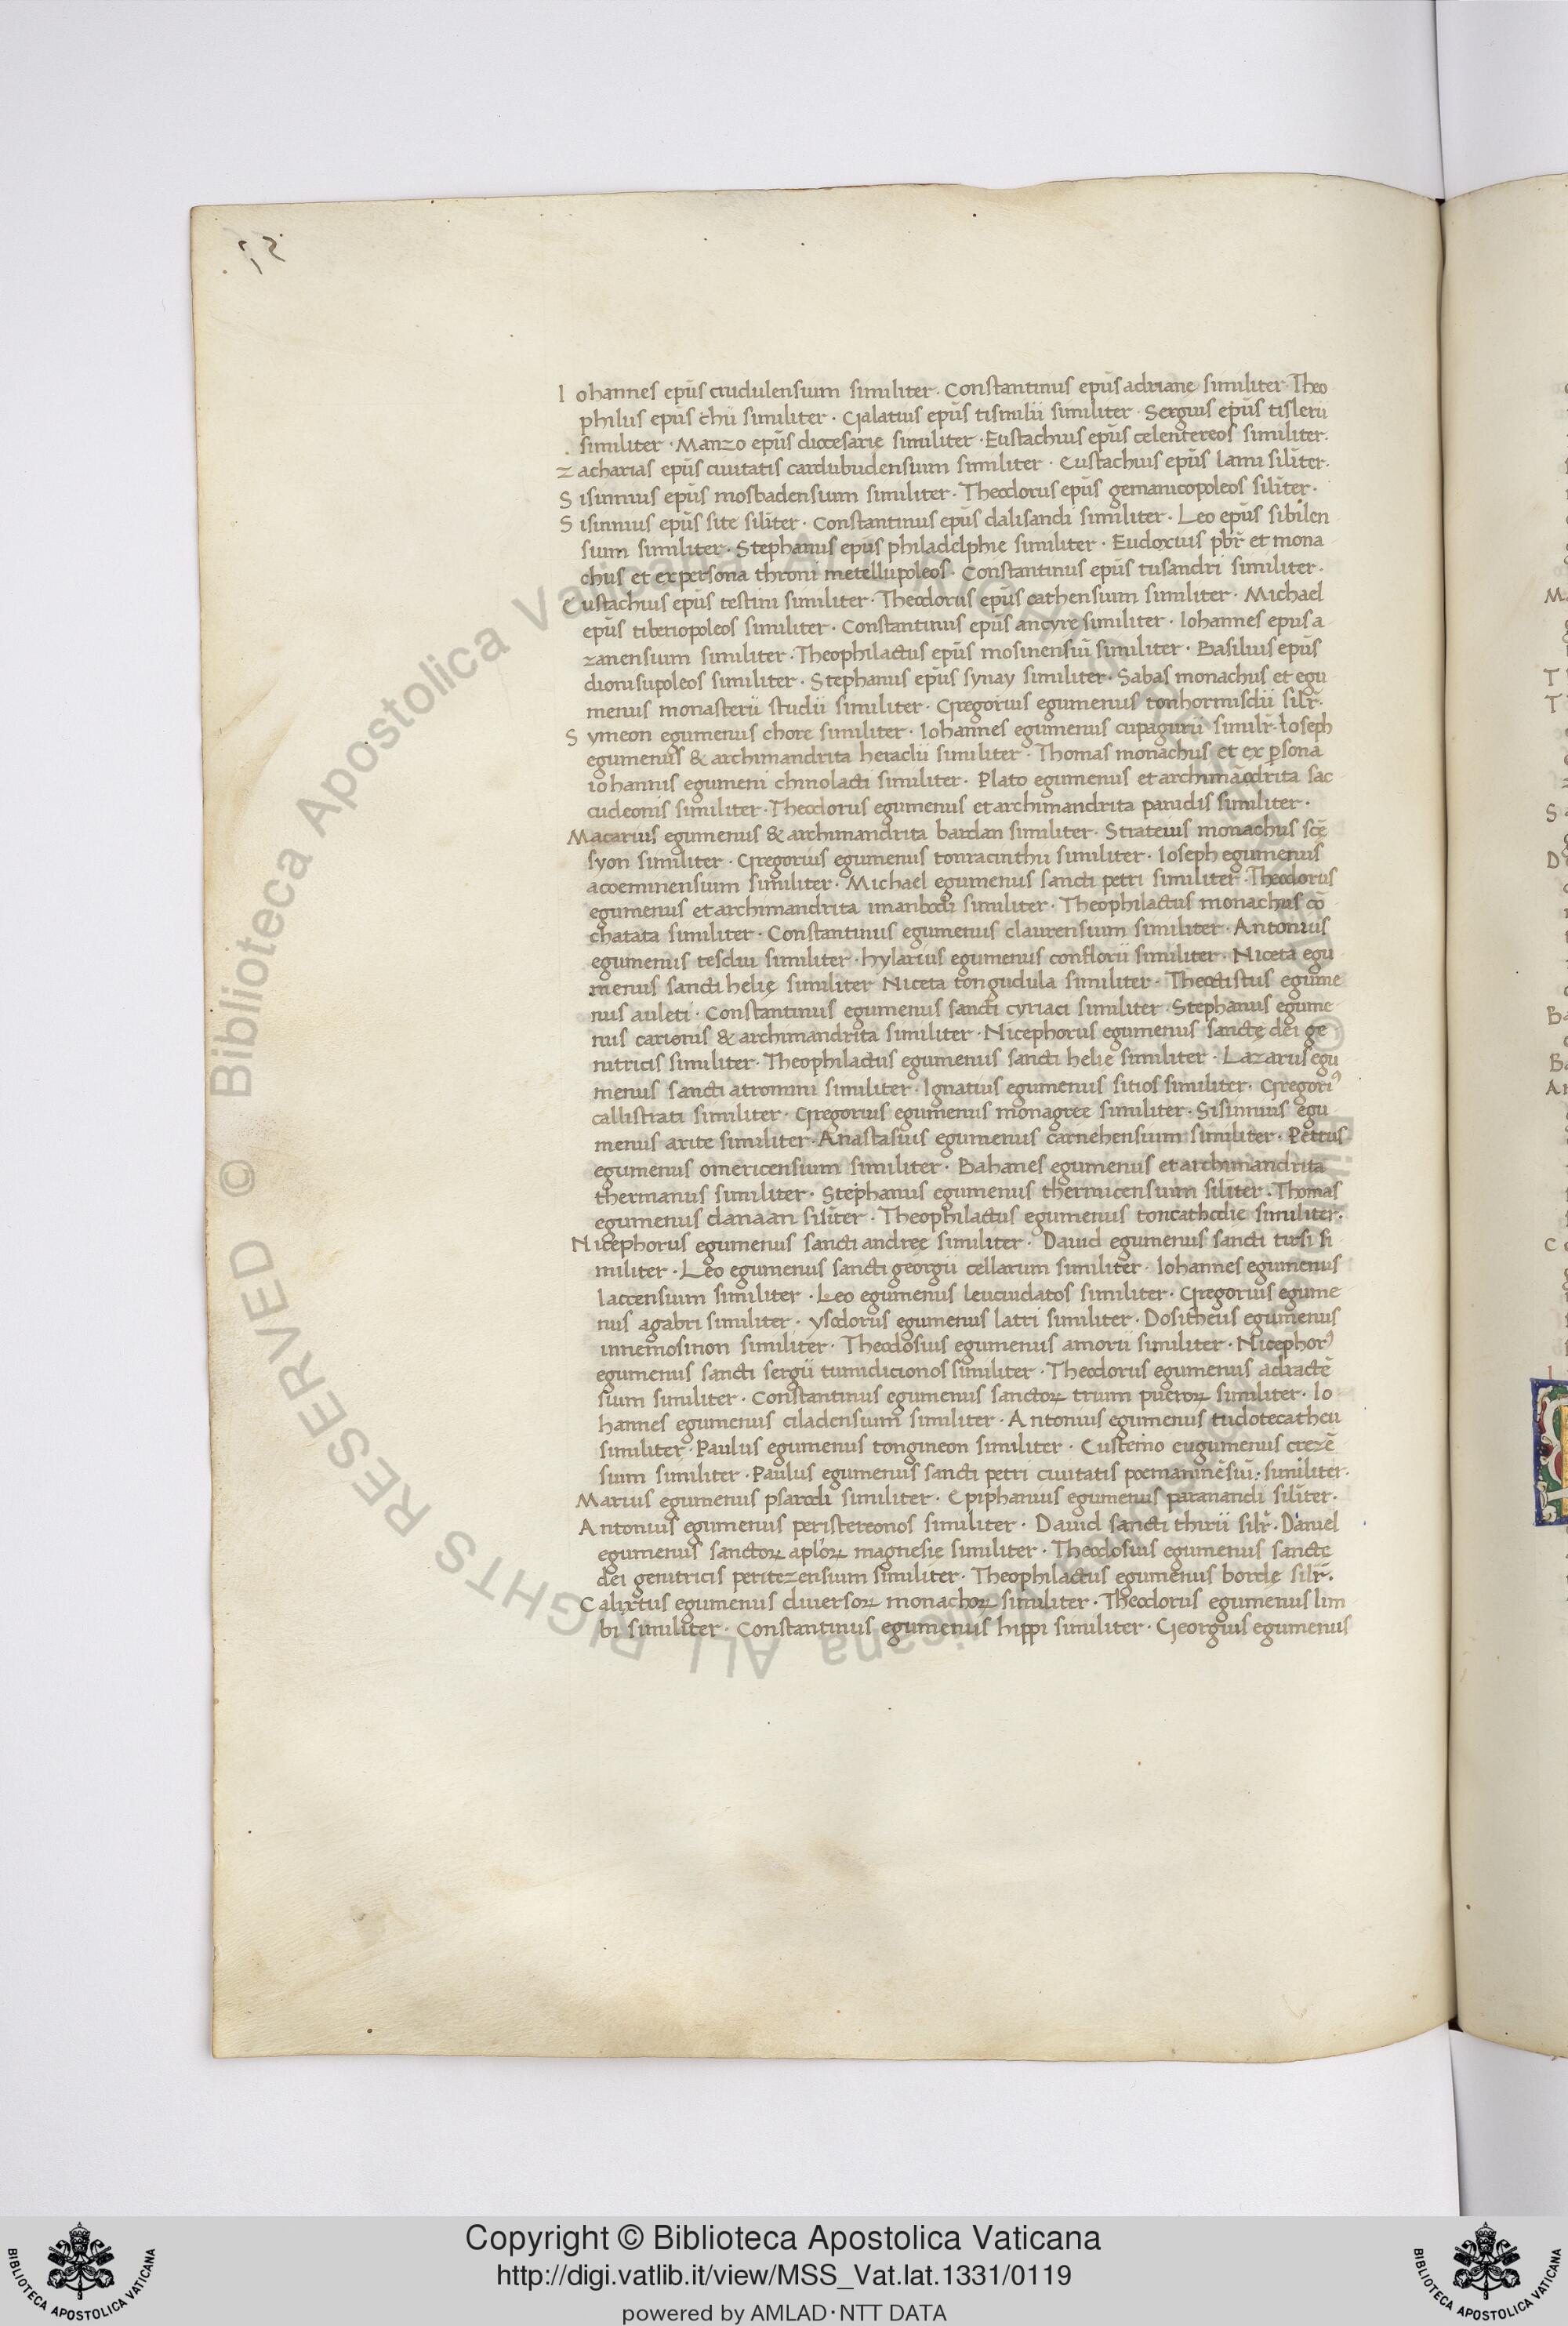 Iohannes ep̄us crudulensium similiter · Constantinus ep̄us adriane similiter Theo
philus ep̄us chii similiter · Galatius ep̄us tismilii similiter · Sergius ep̄us tislerii
similiter · Manzo ep̄us diocesarie similiter · Eustachius ep̄us celentereos similiter ·
Zacharias ep̄us ciuitatis cardubudensium similiter · Eustachius ep̄us lami silīter ·
Sisinnius ep̄us mosbadensium similiter · Theodorus ep̄us gemanicopoleos silīter ·
Sisinnius ep̄us site silīter · Constantinus ep̄us dalisandi similiter · Leo ep̄us sibilen
sium similiter · Stephanus ep̄us philadelphie similiter · Eudoxius pb̄r et mona
chus et ex persona throni metellupoleos · Constantinus ep̄us tusandri similiter ·
Eustachius ep̄us testini similiter · Theodorus ep̄us cathensium similiter · Michael
ep̄us tiberiopoleos similiter · Constantinus ep̄us ancyre similiter · Iohannes epus a
zanensium similiter · Theophilactus ep̄us mosinensiū similiter · Basilius ep̄us
dionisupoleos similiter · Stephanus ep̄us synay similiter · Sabas monachus et egu
menus monasterii studii similiter · Gregorius egumenus tonhormisdii sil̄r ·
Symeon egumenus chore similiter · Iohannes egumenus cupagurii simil̄r · Ioseph
egumenus & archimandrita heraclii similiter · Thomas monachus et ex p̱sona
iohannis egumeni chinolacti similiter · Plato egumenus et archimādrita sac
cudeonis similiter · Theodorus egumenus et archimandrita panidis similiter ·
Macarius egumenus & archimandrita bardan similiter · Strateius monachus sc̄e
syon similiter · Gregorius egumenus tonracinthu similiter · Ioseph egumenus
acoeminensium similiter · Michael egumenus sancti petri similiter · Theodorus
egumenus et archimandrita imanbodi similiter · Theophilactus monachus co
chatata similiter · Constantinus egumenus claurensium similiter · Antonius
egumenus tesdiu similiter · hylarius egumenus conflorii similiter · Niceta egu
menus sancti helię similiter Niceta tongudula similiter · Theoctistus egume
nus auleti · Constantinus egumenus sancti cyriaci similiter · Stephanus egume
nus carionis & archimandrita similiter · Nicephorus egumenus sanctę dei ge
nitricis similiter · Theophilactus egumenus sancti helie similiter · Lazarus egu
menus sancti atromini similiter · Ignatius egumenus sitios similiter · Gregoriꝰ
callistrati similiter · Gregorius egumenus monagree similiter · Sisinnius egu
menus arite similiter · Anastasius egumenus carnehensium similiter · Petrus
egumenus omericensium similiter · Bahanes egumenus et archimandrita
thermanus similiter · Stephanus egumenus thermicensium silīter · Thomas
egumenus danaan silīter · Theophilactus egumenus toncathodie similiter ·
Nicephorus egumenus sancti andree similiter · Dauid egumenus sancti tirsi si
militer · Leo egumenus sancti georgii cellarum similiter · Iohannes egumenus
laccensium similiter · Leo egumenus leuciudatos similiter · Gregorius egume
nus agabri similiter · ysodorus egumenus latri similiter · Dositheus egumenus
innemosinon similiter · Theodosius egumenus amorii similiter · Nicephorꝰ
egumenus sancti sergii tumidicionos similiter · Theodorus egumenus adractē
sium similiter · Constantinus egumenus sanctoꝝ trium pueroꝝ similiter · Io
hannes egumenus ciladensium similiter · Antonius egumenus tudotecatheu
similiter · Paulus egumenus tongineon similiter · Custemo eugumenus crezē
sium similiter · Paulus egumenus sancti petri ciuitatis poemaninēsiū · similiter ·
Marius egumenus psarodi similiter · Epiphanius egumenus paranandi silīter ·
Antonius egumenus peristereonos similiter · Dauid sancti thirii sil̄r · Daniel
egumenus sanctoꝝ apl'oꝝ magnesię similiter · Theodosius egumenus sancte
dei genitricis peritezensium similiter · Theophilactus egumenus bordę sil̄r ·
Calixtus egumenus diuersoꝝ monachoꝝ similiter · Theodorus egumenus lim
bi similiter · Constantinus egumenus hippi similiter · Georgius egumenus
© Biblioteca Apostolica Vaticana ALL RIGHTS RESERVED
Copyright © Biblioteca Apostolica Vaticana
http://digi.vatlib.it/view/MSS_Vat.lat.1331/0119
powered by AMLAD·NTT DATA
BIBLIOTECA APOSTOLICA VATICANA
BIBLIOTECA APOSTOLICA VATICANA